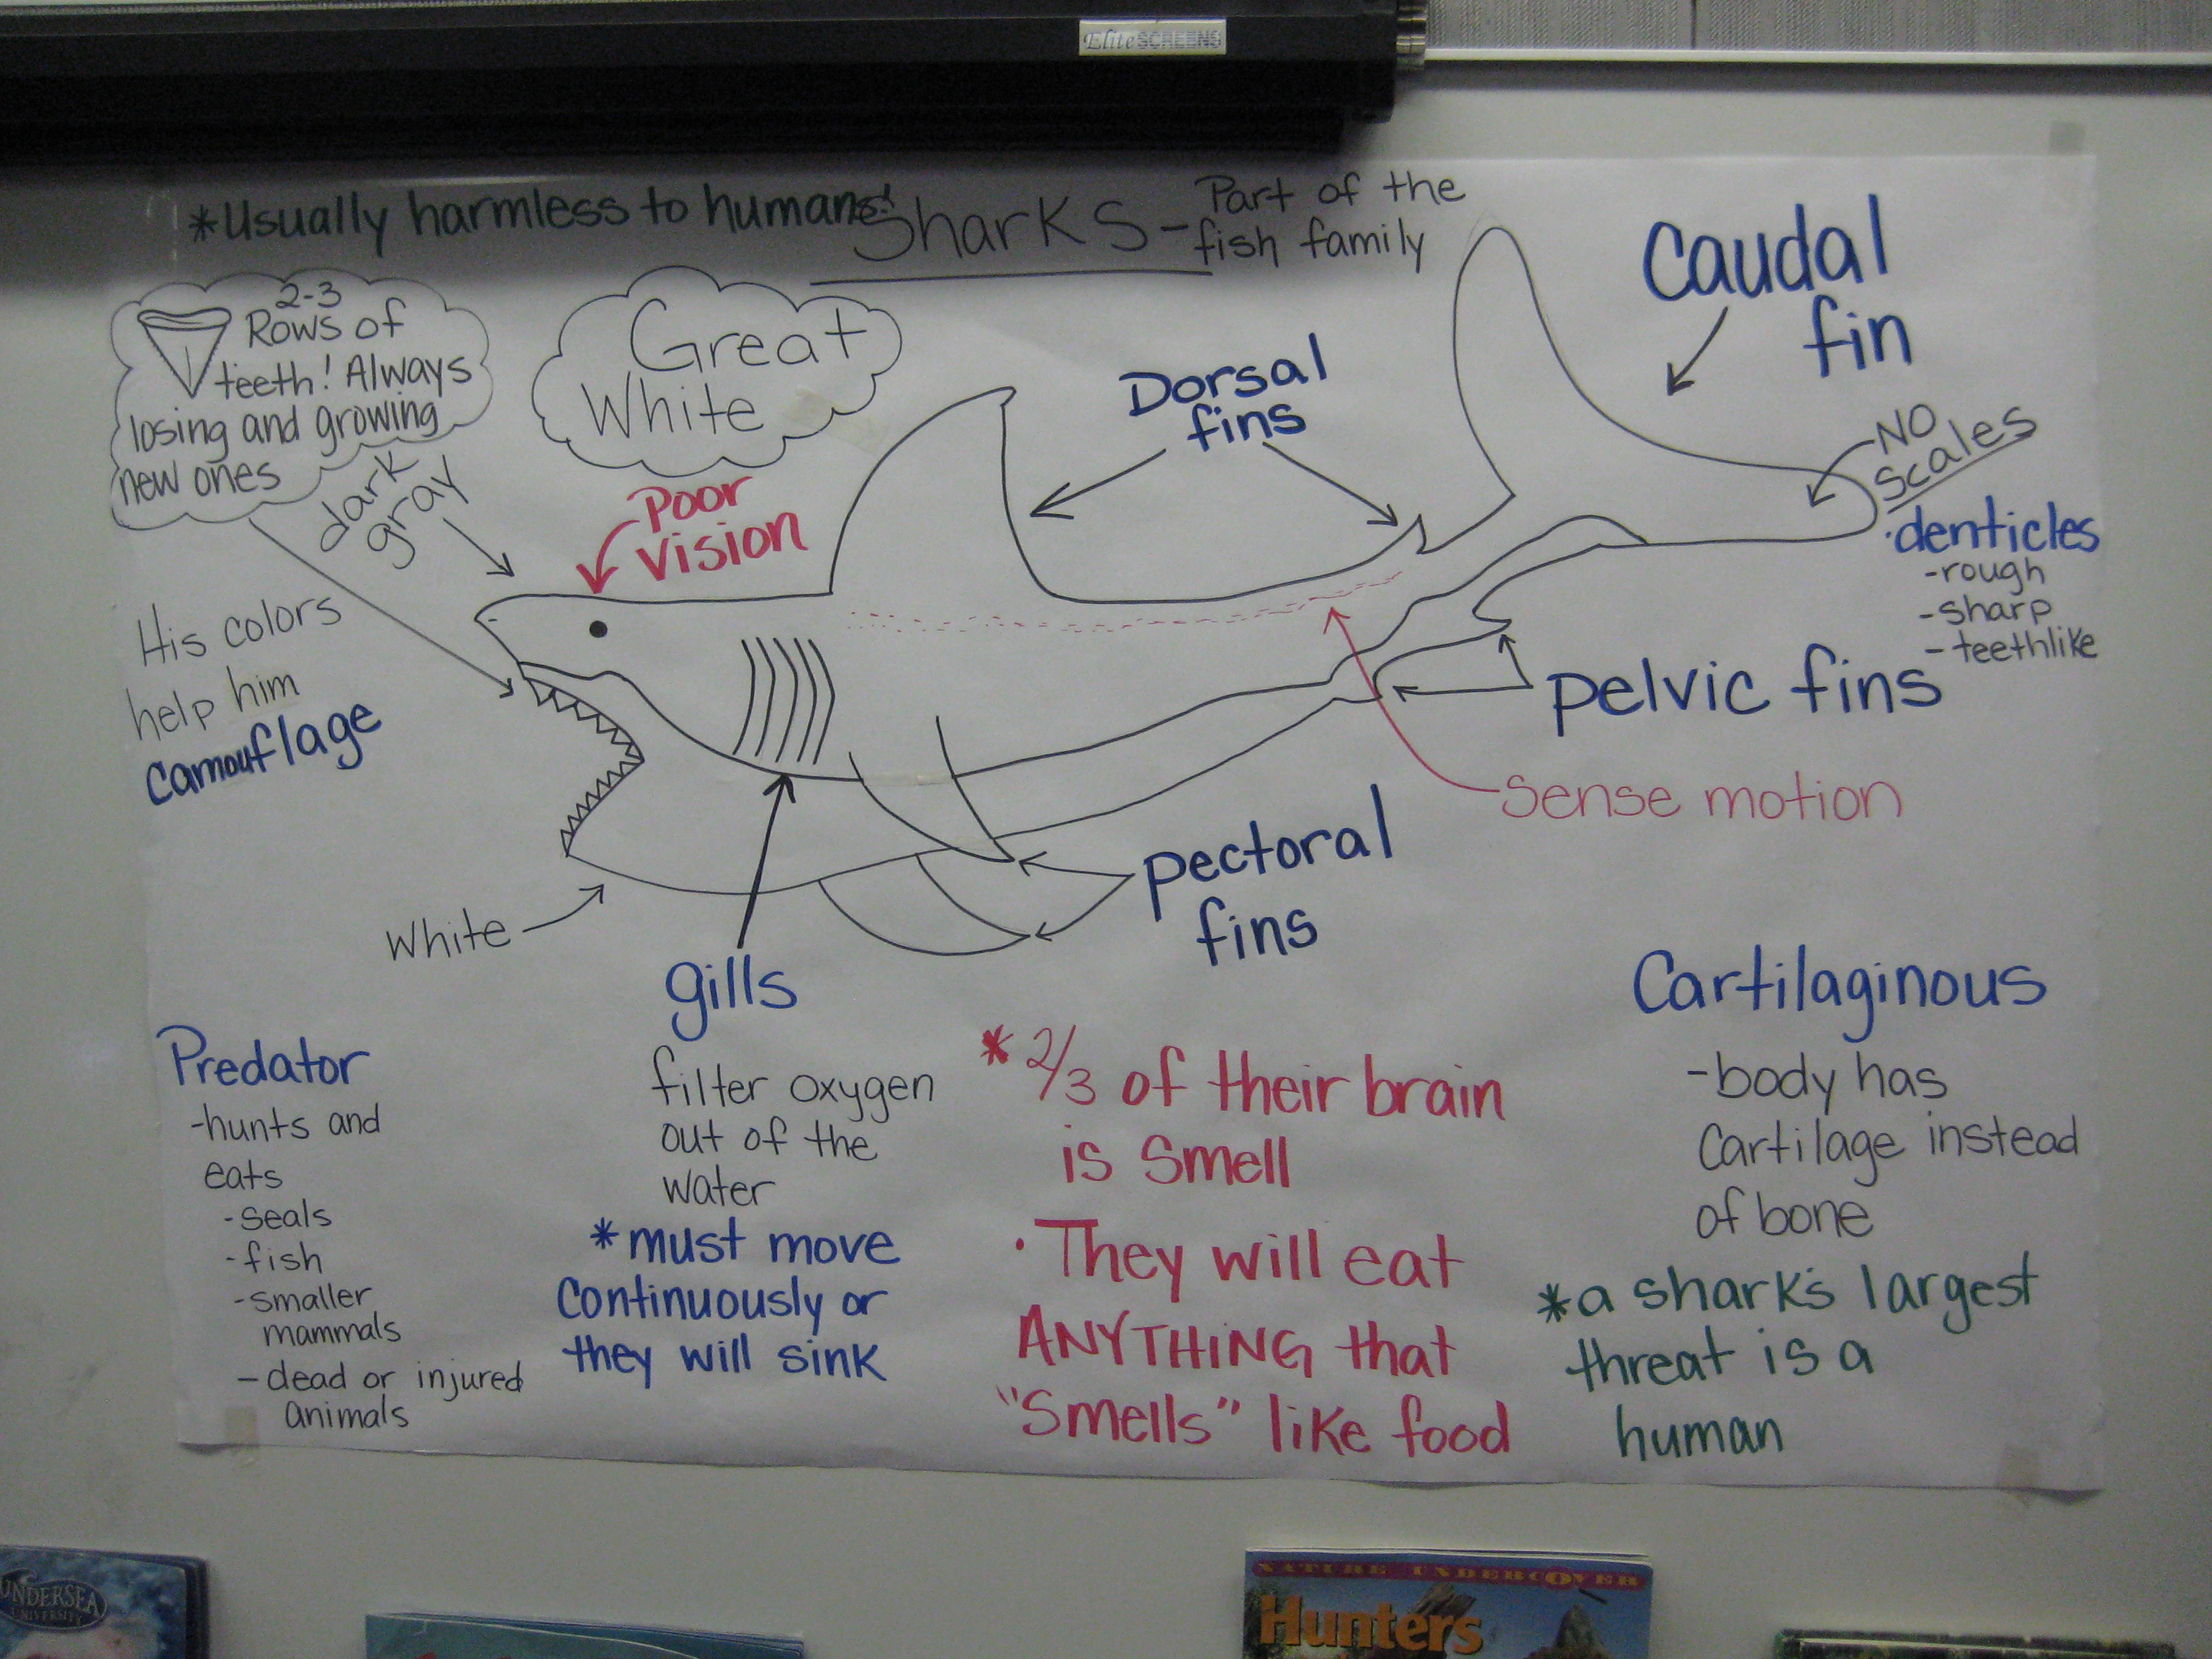 Elite SCREENS
*Usually harmless to humans!
Sharks - Part of the
fish family
2-3
Rows of
teeth! Always
losing and growing
new ones
Great
White
Caudal
fin
Dorsal
fins
dark
gray
Poor
vision
NO
scales
·denticles
-rough
-sharp
-teethlike
His colors
help him
camouflage
Pelvic fins
Sense motion
Pectoral
fins
White
gills
filter oxygen
out of the
water
*must move
continuously or
they will sink
Predator
-hunts and
eats
-seals
-fish
-smaller
mammals
-dead or injured
animals
*2/3 of their brain
is smell
·They will eat
ANYTHING that
"Smells" like food
Cartilaginous
-body has
cartilage instead
of bone
*a shark's largest
threat is a
human
UNDERSEA
UNIVERSITY
NATURE UNDERCOVER
Hunters